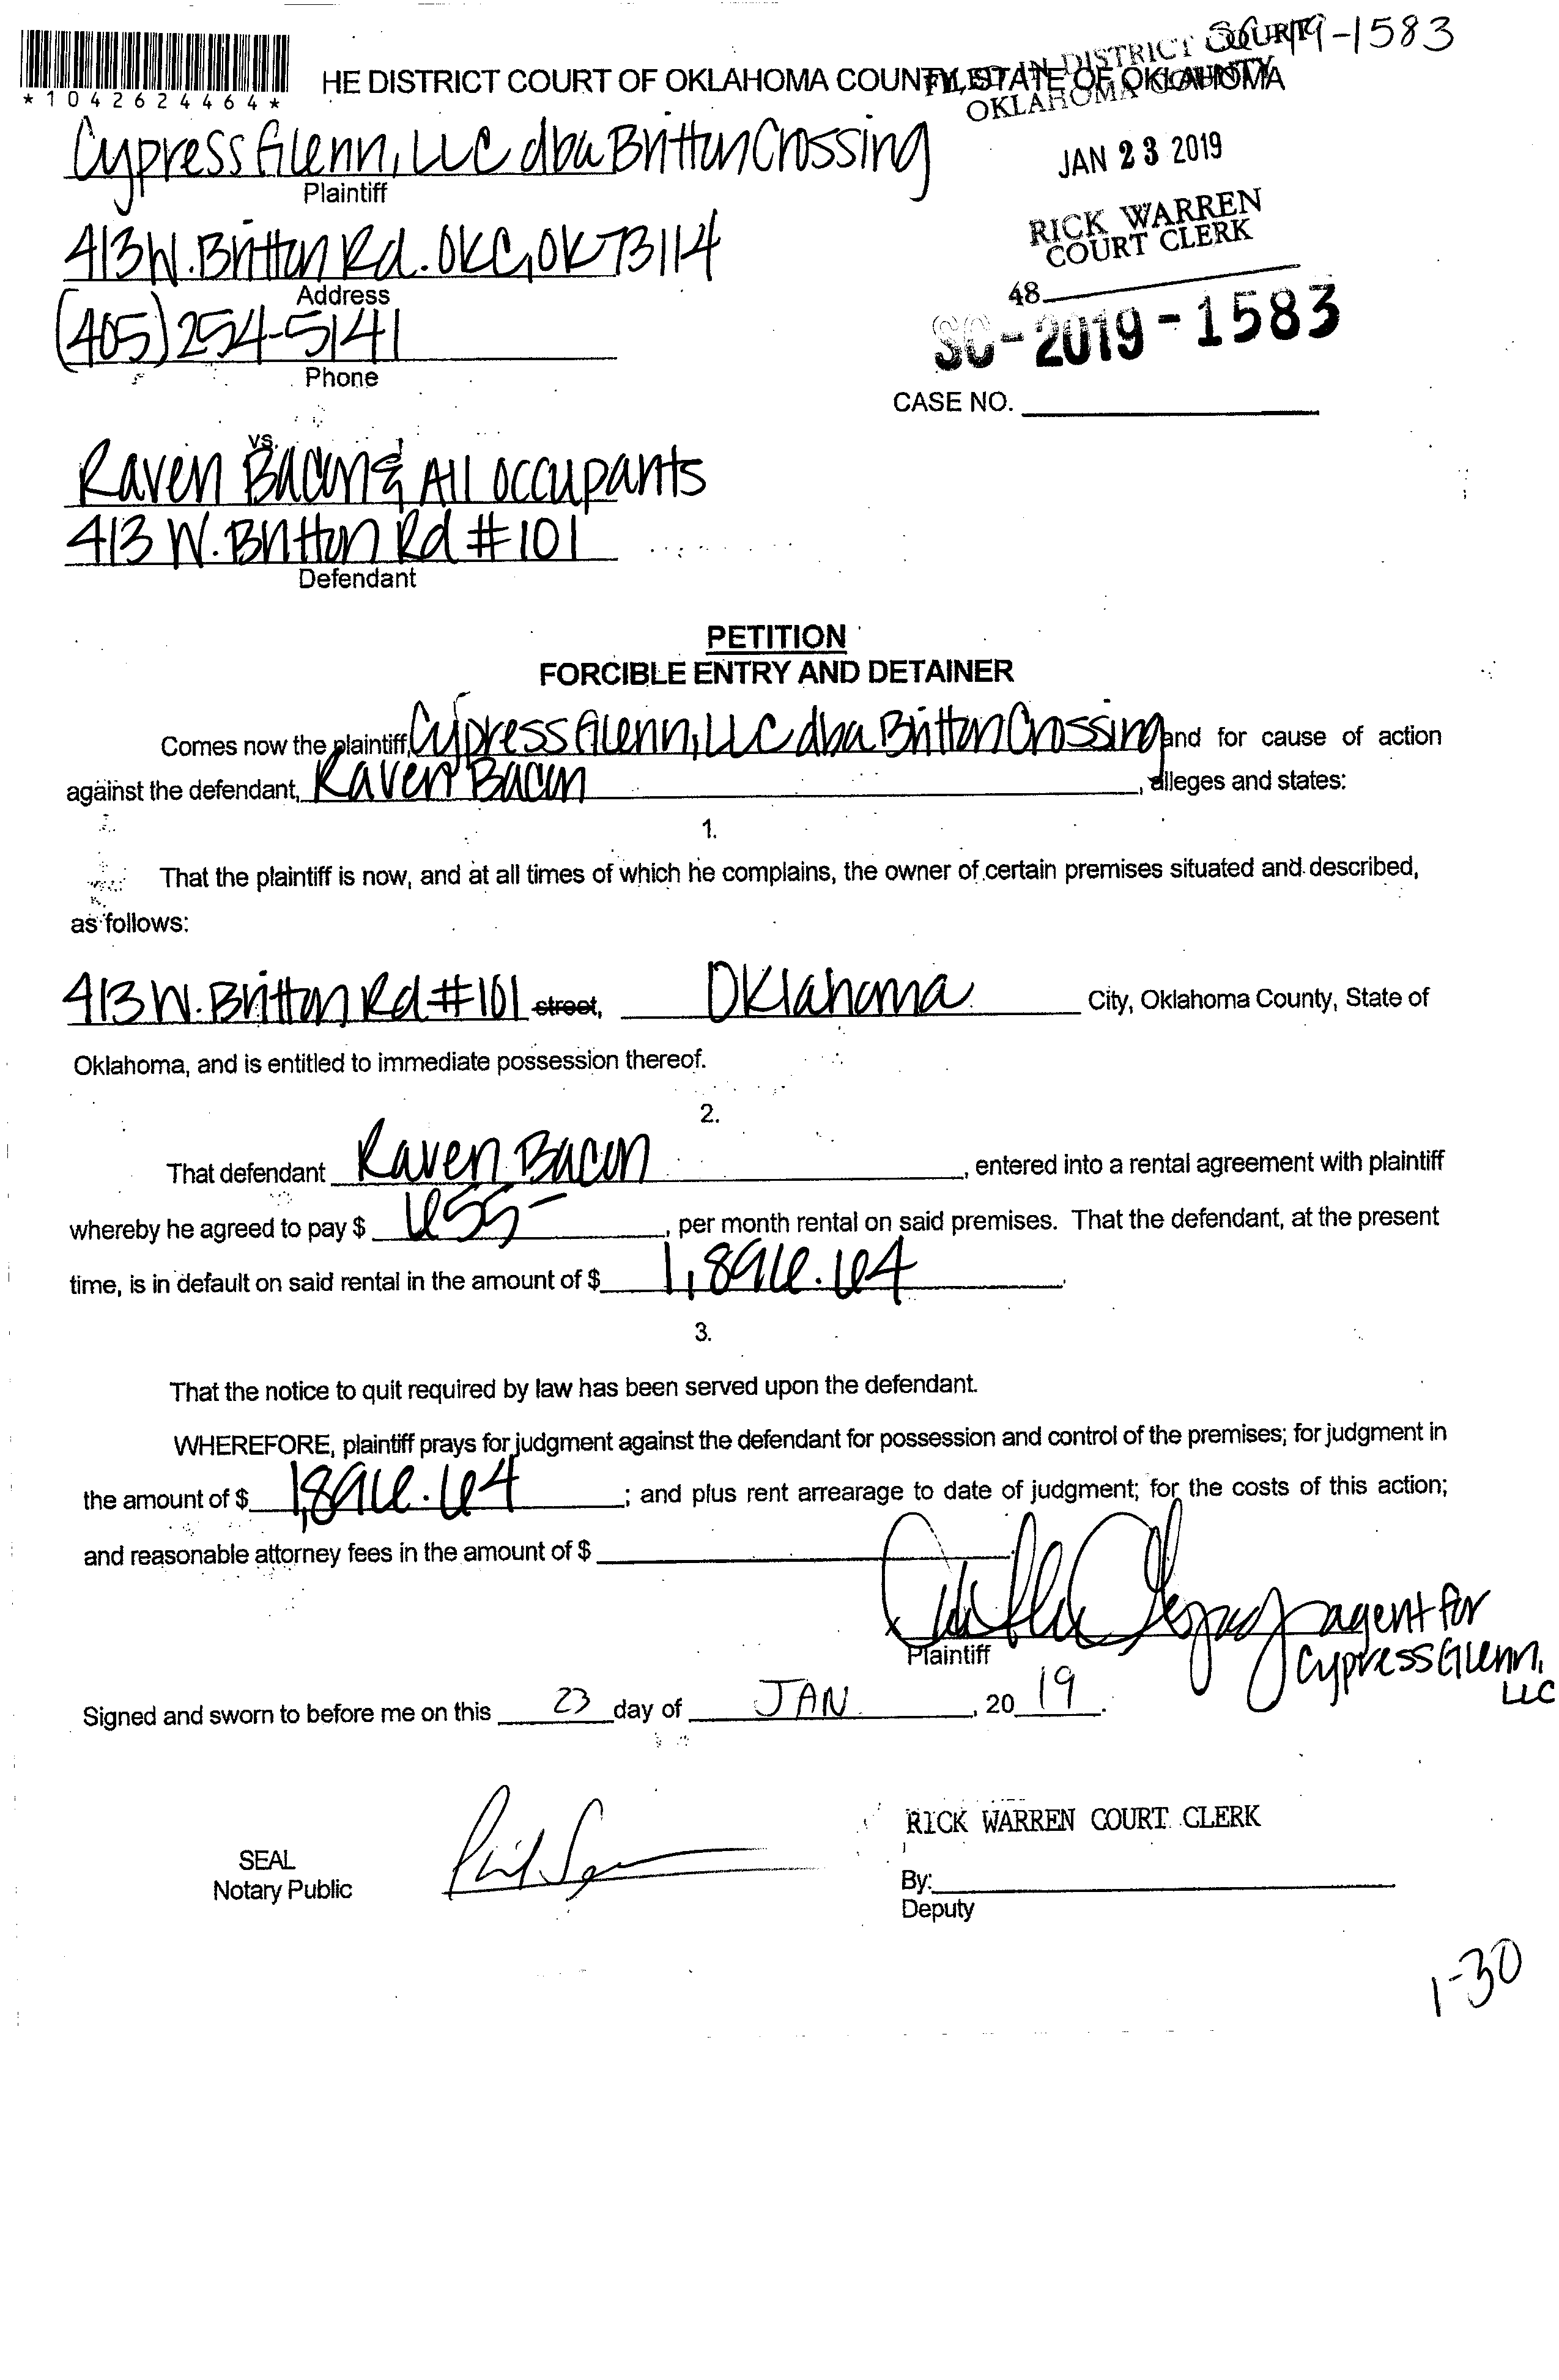 SC-19-1583
*1042624464*
HE DISTRICT COURT OF OKLAHOMA COUNTY, STATE OF OKLAHOMA
FILED IN DISTRICT COURT
OKLAHOMA COUNTY
Cypress Glenn, LLC dba Britton Crossing
Plaintiff
JAN 23 2019
413 W. Britton Rd. OKC, OK 73114
Address
RICK WARREN
COURT CLERK
48
(405) 254-5141
Phone
SC-2019-1583
CASE NO.
vs.
Raven Bacon & All occupants
413 W. Britton Rd #101
Defendant
PETITION
FORCIBLE ENTRY AND DETAINER
Comes now the plaintiff, Cypress Glenn, LLC dba Britton Crossing and for cause of action
against the defendant, Raven Bacon, alleges and states:
1.
That the plaintiff is now, and at all times of which he complains, the owner of certain premises situated and described,
as follows:
413 W. Britton Rd #101 street, Oklahoma City, Oklahoma County, State of
Oklahoma, and is entitled to immediate possession thereof.
2.
That defendant Raven Bacon, entered into a rental agreement with plaintiff
whereby he agreed to pay $ 655-, per month rental on said premises. That the defendant, at the present
time, is in default on said rental in the amount of $ 1,896.64.
3.
That the notice to quit required by law has been served upon the defendant.
WHEREFORE, plaintiff prays for judgment against the defendant for possession and control of the premises; for judgment in
the amount of $ 1,896.64; and plus rent arrearage to date of judgment; for the costs of this action;
and reasonable attorney fees in the amount of $
agent for
Cypress Glenn,
LLC
Plaintiff
Signed and sworn to before me on this 23 day of JAN, 2019.
RICK WARREN COURT CLERK
SEAL
Notary Public
By:
Deputy
1-30